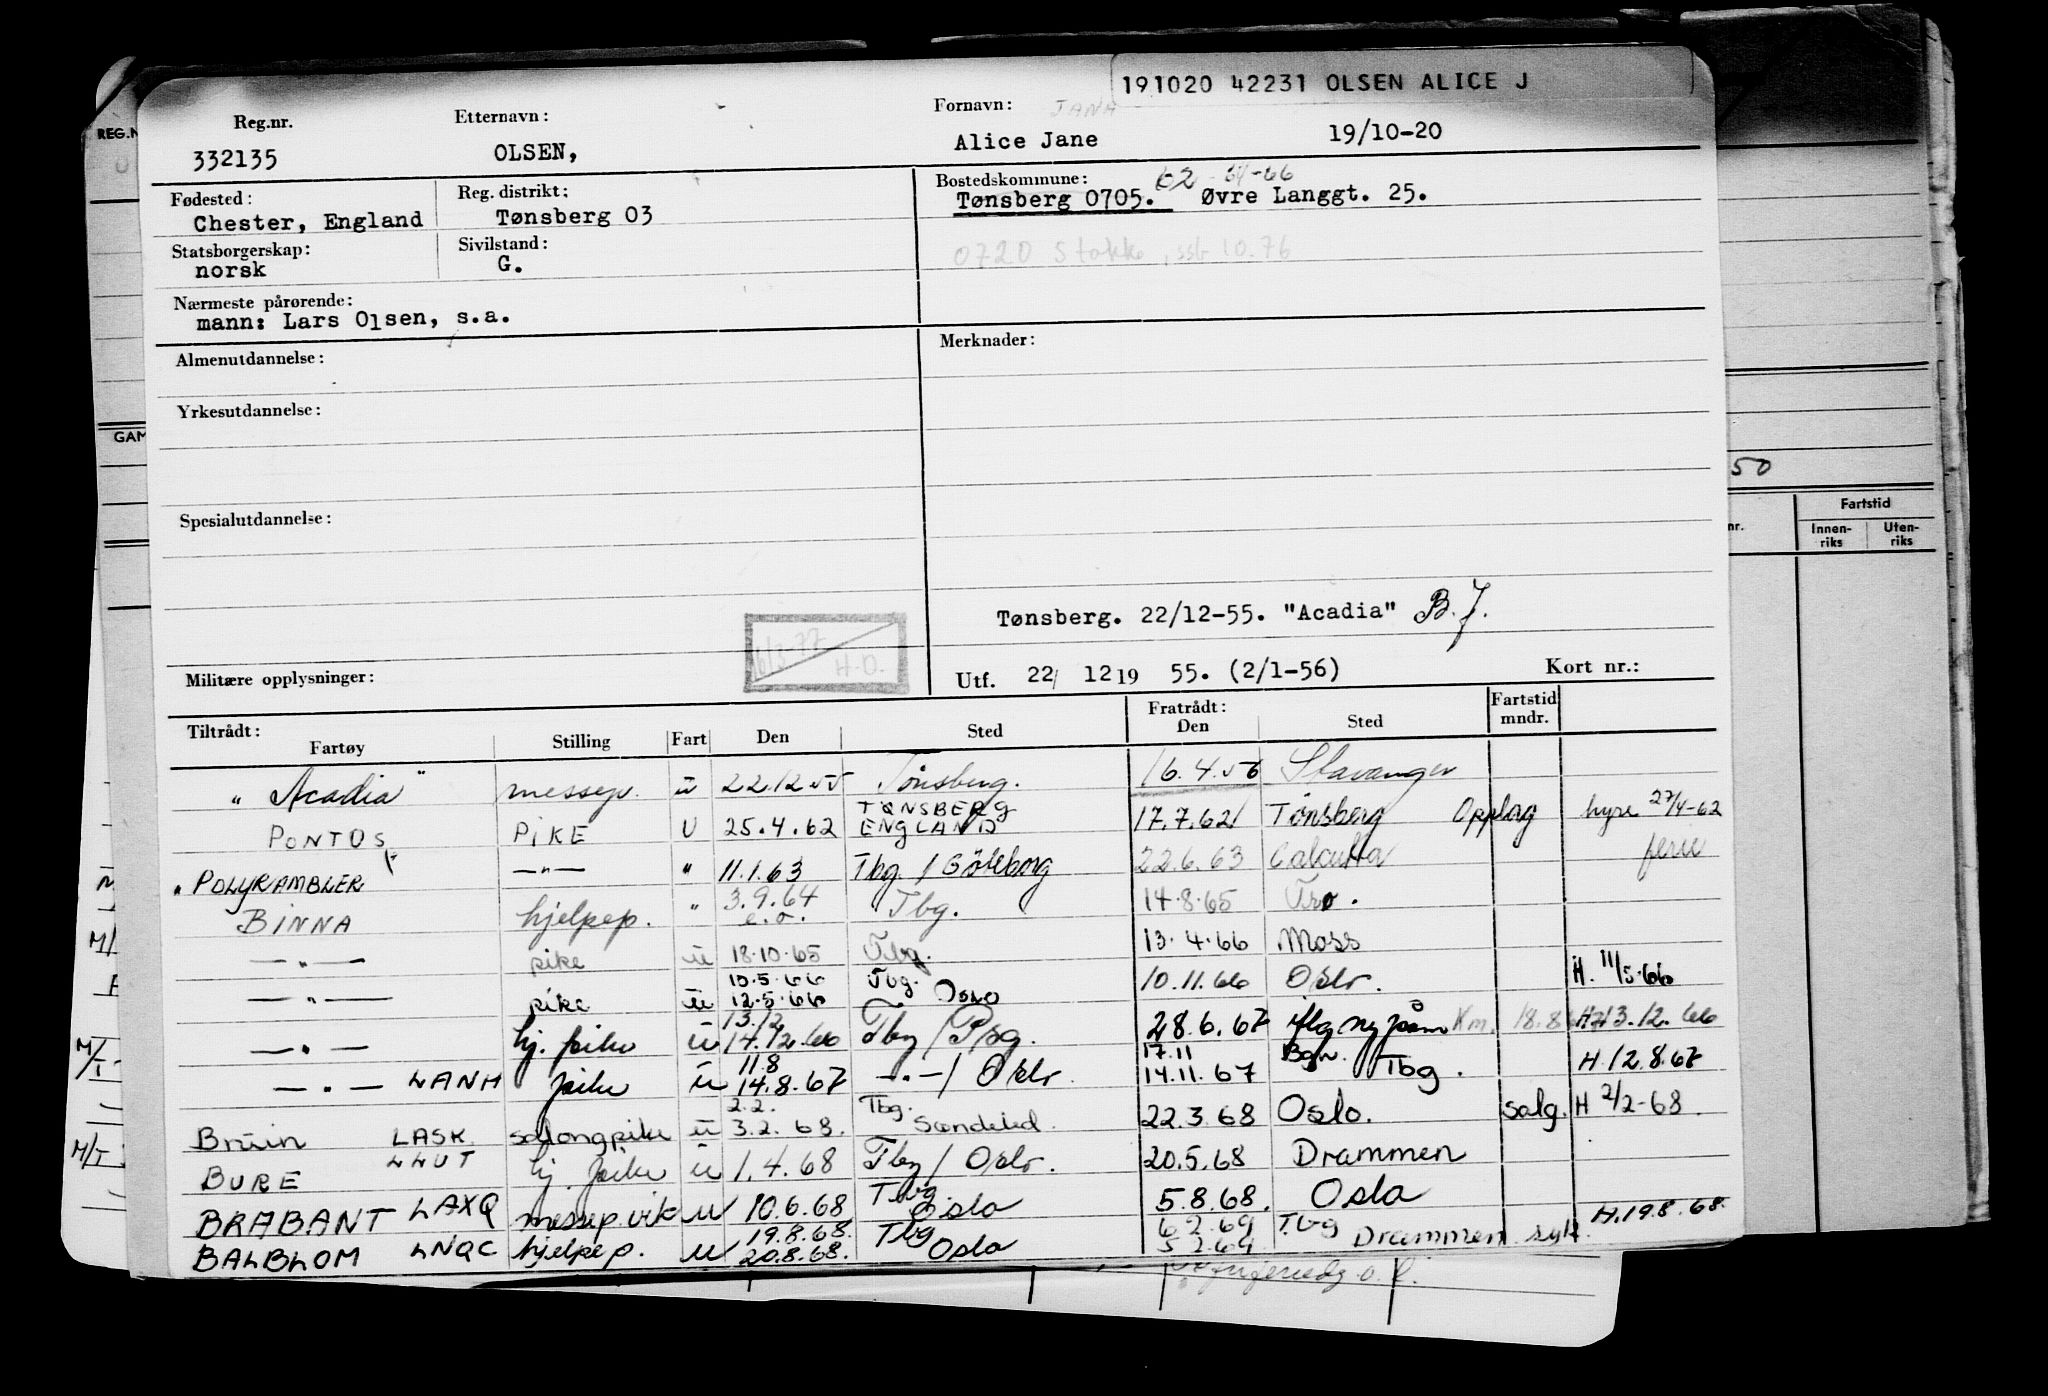 191020 42231 OLSEN ALICE J
Reg.nr. Etternavn: Fornavn: JANA
332135 OLSEN, Alice Jane 19/10-20
Fødested: Reg. distrikt: Bostedskommune: 62 - 64-66
Chester, England Tønsberg 03 Tønsberg 0705. Øvre Langgt. 25.
Statsborgerskap: Sivilstand: 0720 Stokke, 10.76
norsk G.
Nærmeste pårørende:
mann: Lars Olsen, s.a.
Almenutdannelse: Merknader:
Yrkesutdannelse:
Spesialutdannelse:
Tønsberg. 22/12-55. "Acadia" B.J.
6/3-77 H.O.
Militære opplysninger: Utf. 22/ 12 19 55. (2/1-56) Kort nr.:
Tiltrådt: Fratrådt: Fartstid mndr.
Fartøy Stilling Fart Den Sted Den Sted
"Acadia" messep. u 22.12.55 Tønsberg. 16.4.56 Stavanger
PONTOS PIKE U 25.4.62 TØNSBERG ENGLAND 17.7.62 Tønsberg Opplag hyre 27/4-62
"POLYRAMBLER —"— " 11.1.63 Tbg. / Göteborg 22.6.63 Calcutta ferie
BINNA hjelpep. " 3.9.64 e.o. Tbg. 14.8.65
—"— pike u 18.10.65 Tbg. 13.4.66 Moss
—"— pike u 10.5.66 12.5.66 Tbg. Oslo 10.11.66 Oslo. H. 11/5.66
—"— hj. pike u 13.12 14.12.66 Tbg / Psg. 28.6.67 H 13.12.66
—"— LANH pike u 11.8 14.8.67 —"— / Oslo. 17.11 14.11.67 Tbg. H. 12.8.67
Bruin LASK salongpike u 2.2. 3.2.68. Tbg. Søndeled. 22.3.68 Oslo. salg. H 2/2-68.
BURE LLUT hj. pike u 1.4.68 Tbg / Oslo. 20.5.68 Drammen
BRABANT LAXQ messep.vik u 10.6.68 Tbg Oslo 5.8.68. Oslo
BALBLOM LNQC hjelpep. u 19.8.68. 20.8.68. Tbg Oslo 6.2.69 5.2.69 Tbg Drammen syk. H.19.8.68.
REG.N
GAM
50
nr. Fartstid
Innen-riks Uten-riks
M/
M/T
M/T